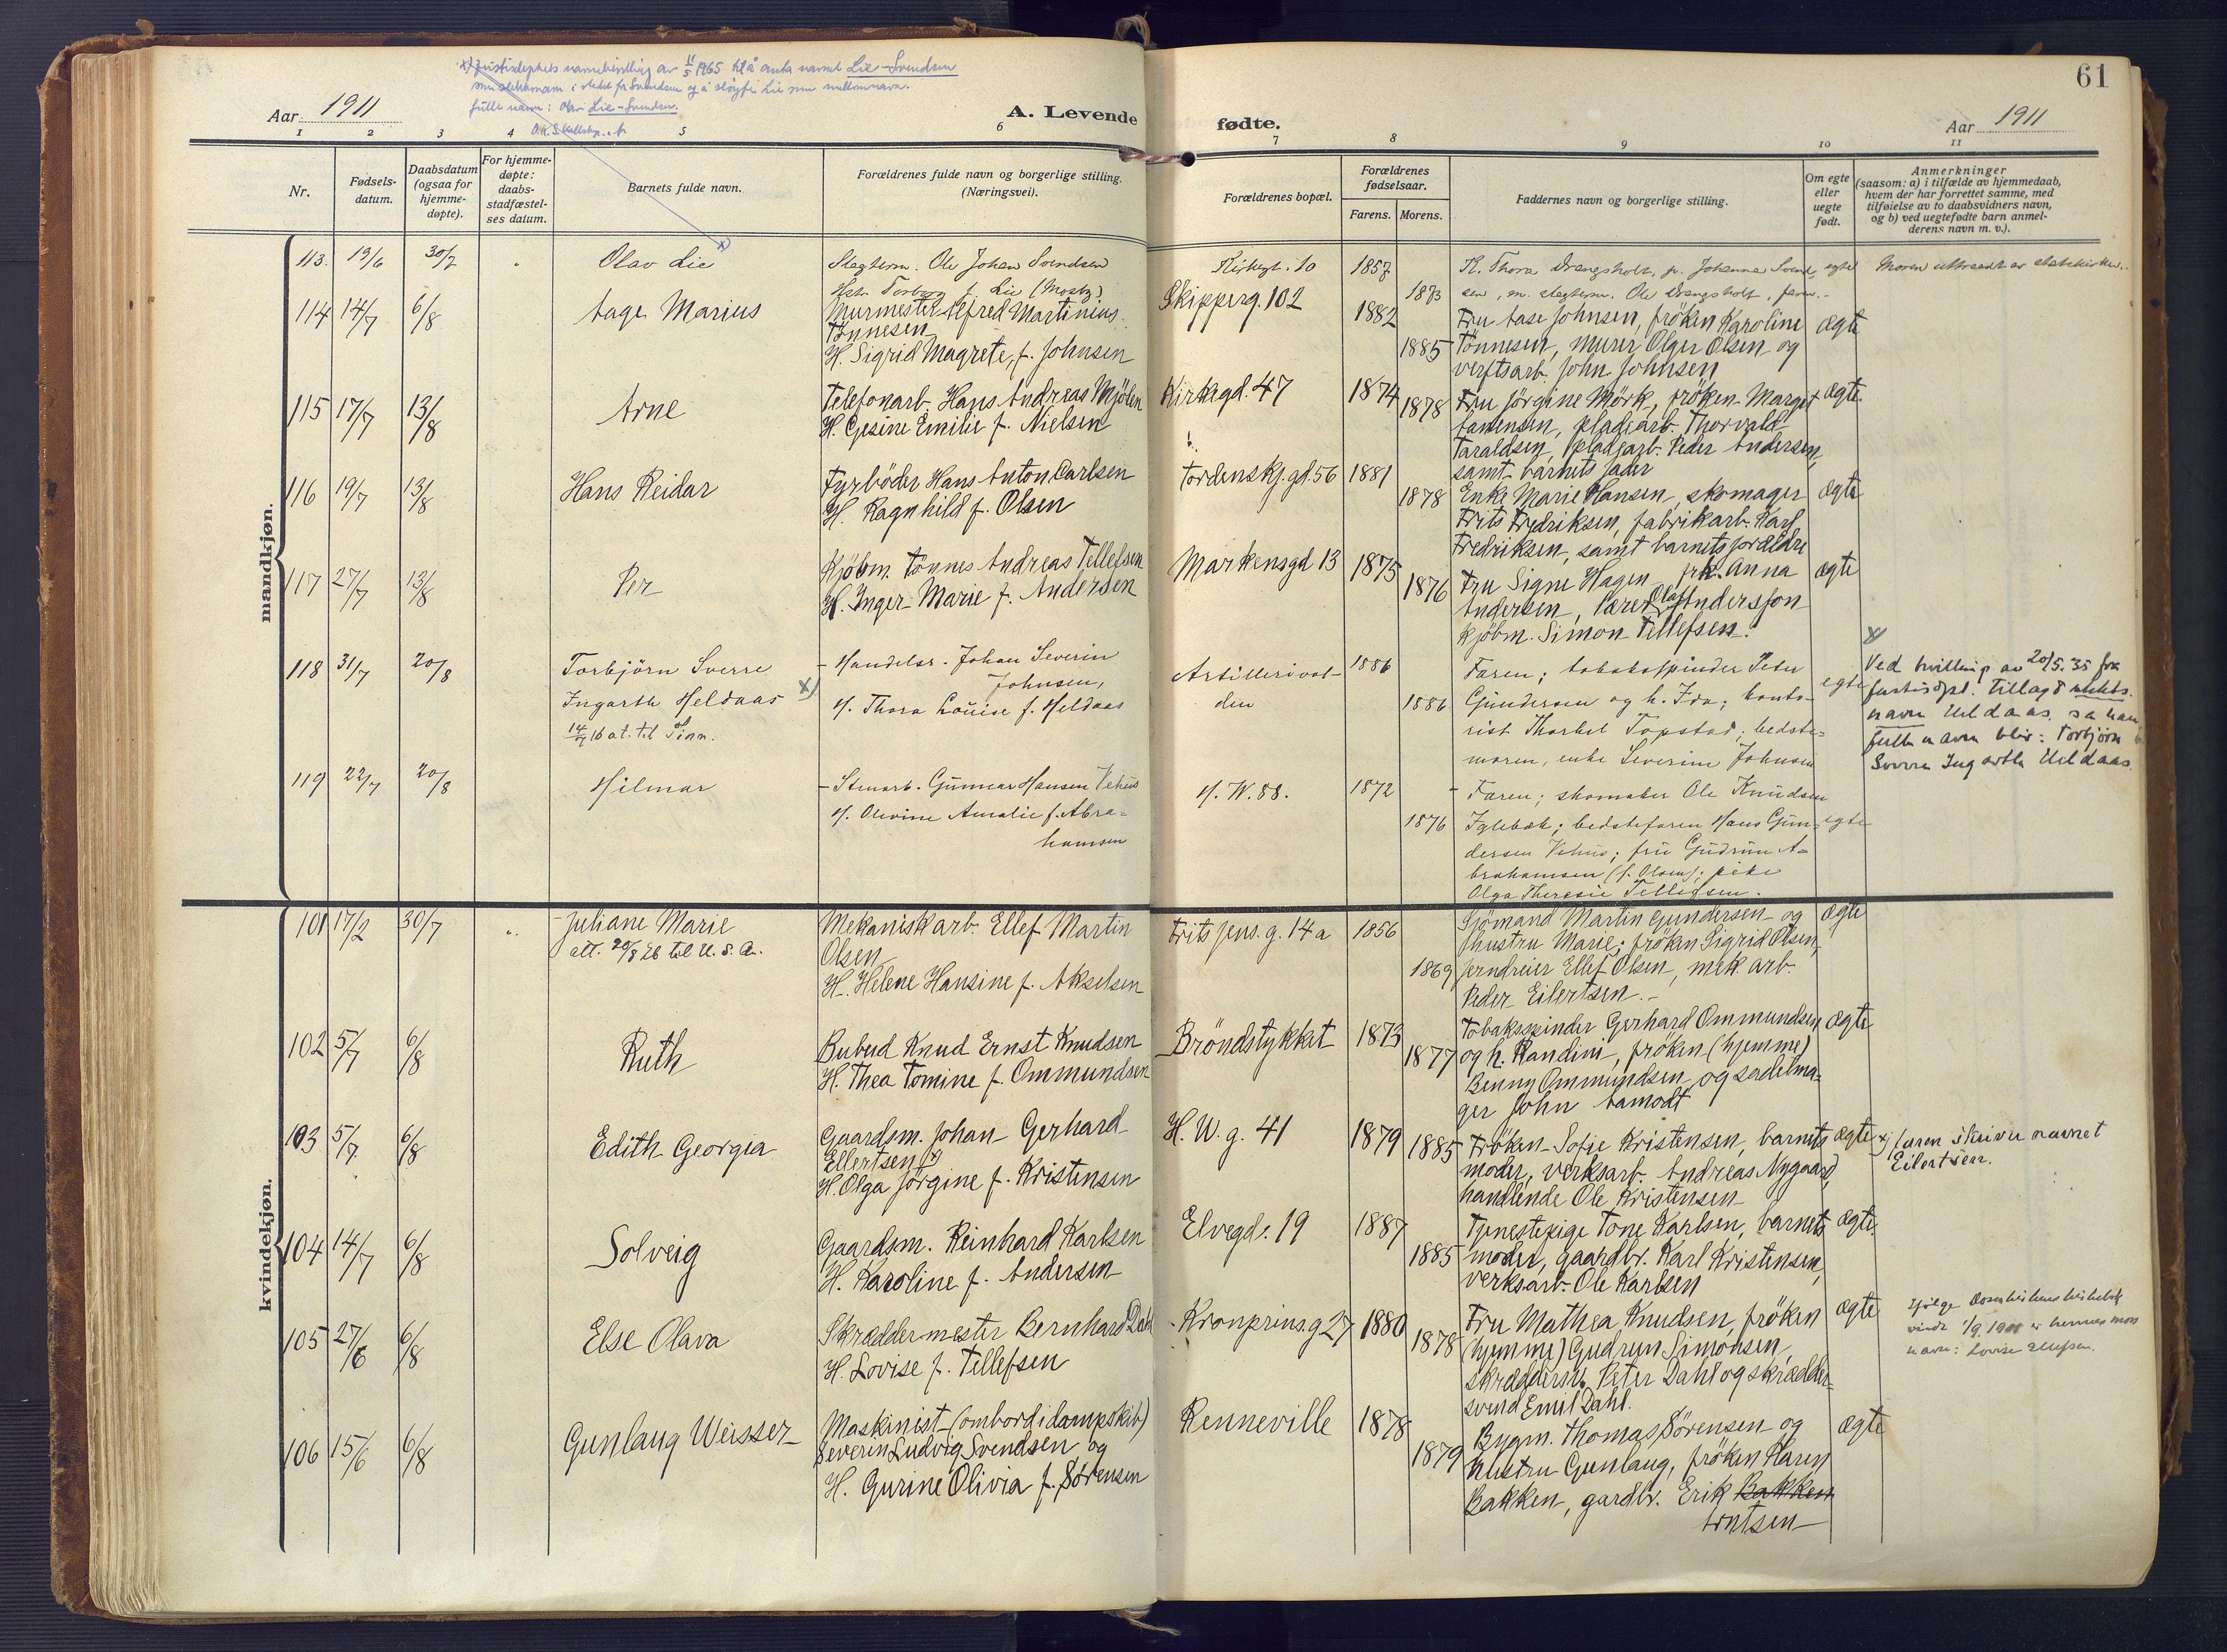 61
Aar 1911
A. Levende
fødte.
Aar 1911
x) Justisdeptets navnebevilling av 11/5 1965 til å anta navnet Lie-Svendsen
som slektsnavn i stedet for Svendsen og å sløyfe Lie som mellomnavn.
fulle navn: Olav Lie-Svendsen.
1 2 3 4 5 6 7 8 9 10 11
Nr.
Fødsels-
datum.
Daabsdatum
(ogsaa for
hjemme-
døpte).
For hjemme-
døpte:
daabs-
stadfæstel-
ses datum.
Barnets fulde navn.
Forældrenes fulde navn og borgerlige stilling.
(Næringsvei).
Forældrenes bopæl.
Forældrenes
fødselsaar.
Farens. Morens.
Faddernes navn og borgerlige stilling.
Om egte
eller
uegte
født.
Anmerkninger
(saasom: a) i tilfælde av hjemmedaab,
hvem der har forrettet samme, med
tilføielse av to daabsvidners navn,
og b) ved uegtefødte barn anmel-
derens navn m. v.).
mandkjøn.
113. 19/6 30/7 " Olav Lie x)
Slagterm. Ole Johan Svendsen
Hstr. Torborg f. Lie (Mosby)
Kirkegt. 10 1857
1873
K. Thora Drangsholt, fr. Johanna Svend-
sen, m. slagterm. Ole Drangsholt, faren.-
egte
Moren uttraadt av statskirken.
114 14/7 6/8 Aage Marius
Murmester Alfred Martinius
Tønnesen
H. Sigrid Magrete, f. Johnsen
Skipperg. 102 1882
1885
Fru Aase Johnsen, frøken Karoline
Tønnesen, murer Olger Olsen og
verftsarb. John Johnsen
ægte
115 17/7 13/8 Arne
Telefonarb. Hans Andreas Mjølen
H. Gesine Emilie f. Nielsen
Kirkegd. 47 1874
1878
Fru Jörgine Mörk, fröken Margit
Aanensen, pladsarb. Thorvald
Taraldsen, pladsarb. Peder Andersen,
samt barnets fader
ægte
116 19/7 13/8 Hans Reidar
Fyrbøder Hans Anton Carlsen
H. Ragnhild f. Olsen
Tordenskj. gd. 56 1881
1878
Enke Marie Hansen, skomager
Frits Fredriksen, fabrikarb. Karl
Fredriksen, samt barnets forældre
ægte
117 27/7 13/8 Per
Kjøbm. Tønnes Andreas Tellefsen
H. Inger Marie f. Andersen
Markensgd 13 1875
1876
Fru Signe Hagen, frk. Anna
Andersen, lærer Olaf Andersson
kjøbm. Simon Tellefsen.
ægte
118 31/7 20/8 Torbjörn Sverre
Ingarth Heldaas x)
14/4 16 at. til Tinn.
- Handelsr. Johan Severin
Johnsen,
H. Thora Louise f. Heldaas
Artillerivol-
den
1886
1886
Faren; tobakspinder Peter
Gundersen og h. Ida; konto-
rist Thorkel Topstad; bedste-
moren, enke Severine Johnsen
egte
x)
Ved bevilling av 20/5.35 fra
justisdpt. tillagt slekts-
navn Heldaas, sa han
fulle navn blir: Torbjørn
Sverre Ingarth Heldaas.
119 22/7 20/8 Hilmar
- Stenarb. Gunnar Hansen Vehus
H. Olevine Amalie f. Abra-
hamsen
H. W. 88. 1872
1876
- Faren; skomaker Ole Knudsen
Iglebæk; bedstefaren Hans Gun-
dersen Vehus; fru Gudrun A-
brahamsen (f. Olsen); pike
Olga Theresie Tellefsen.
egte
kvindekjøn.
101 17/2 30/7 " Juliane Marie
att. 20/8 26 til U. S. A.
Mekanisk arb. Ellef Martin
Olsen
H. Helene Hansine f. Akselsen
Frits Jens. g. 14 a 1856
1869
Sjömand Martin Gundersen og
hustru Marie; fröken Sigrid Olsen,
jerndreier Ellef Olsen, mek arb.
Peder Eilertsen.-
ægte
102 5/7 6/8 Ruth
Bubud Knud Ernst Knudsen
H. Thea Tomine f. Ommundsen
Bröndstykket 1873
1877
Tobaksspinder Gerhard Ommundsen
og h. Randini, fröken (hjemme)
Benny Ommundsen og sadelma-
ger John Aamodt
ægte
103 5/7 6/8 Edith Georgia
Gaardsm. Johan Gerhard
Ellertsen x)
H. Olga Jörgine f. Kristensen
H. W. g. 41 1879
1885
Fröken Sofie Kristensen, barnets
moder, verksarb. Andreas Nygaard,
handlende Ole Kristensen
ægte
x) faren skriver navnet
Eilertsen.
104 14/7 6/8 Solveig
Gaardsm. Reinhard Karlsen
H. Karoline f. Andersen
Elvegd. 19 1887
1885
Tjenestepige Tone Karlsen, barnets
moder, gaardbr. Karl Kristensen,
verksarb. Ole Karlsen
ægte
105 27/6 6/8 Else Olava
Skræddermester Bernhard Dahl
H. Lovise f. Tellefsen
Kronprins.g 27 1880
1878
Fru Mathea Knudsen, fröken
(hjemme) Gudrun Simonsen,
skrædderm. Peter Dahl og skrædder-
svend Emil Dahl.
ægte
navn: Lovise Ellefsen.
106 15/6 6/8 Gunlaug Weisser
Maskinist (ombord i dampskib)
Severin Ludvig Svendsen og
H. Gurine Olivia f. Sørensen
Renneville 1878
1879
Bygm. Thomas Sörensen og
hustru Gunlaug, fröken Karen
Bakken, gardbr. Erik Bakken
Arntsen
ægte